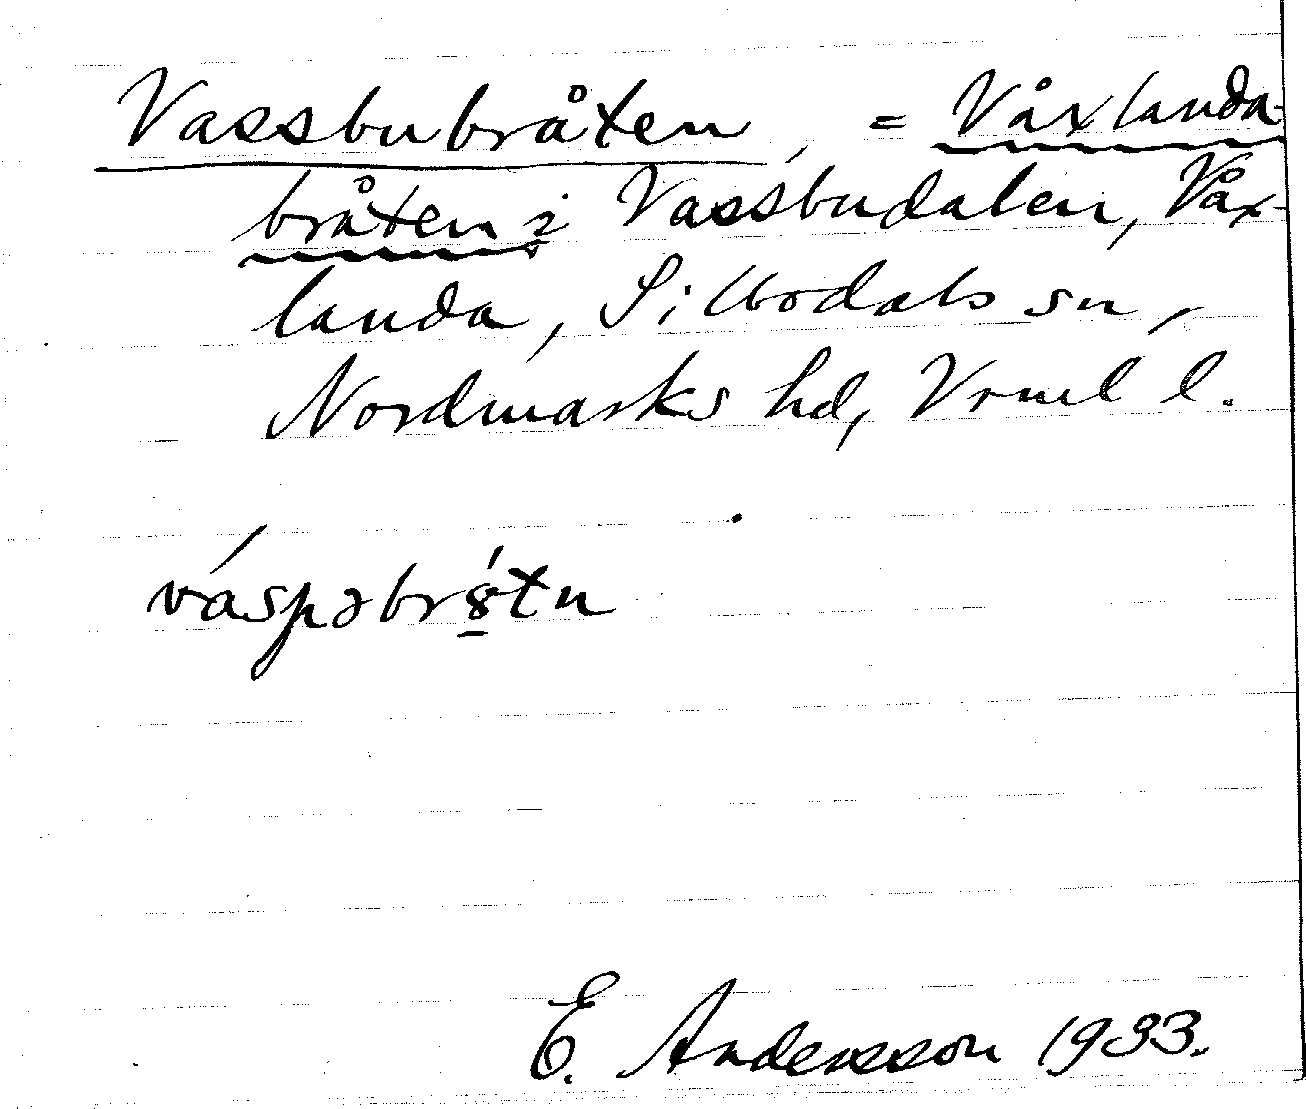 Vassbubråten, = Våxlanda-
bråten i Vassbudalen, Våx-
landa, Sillbodals sn,
Nordmarks hd, Vrml l.
váspəbrȣ́tn
E. Andersson 1933.